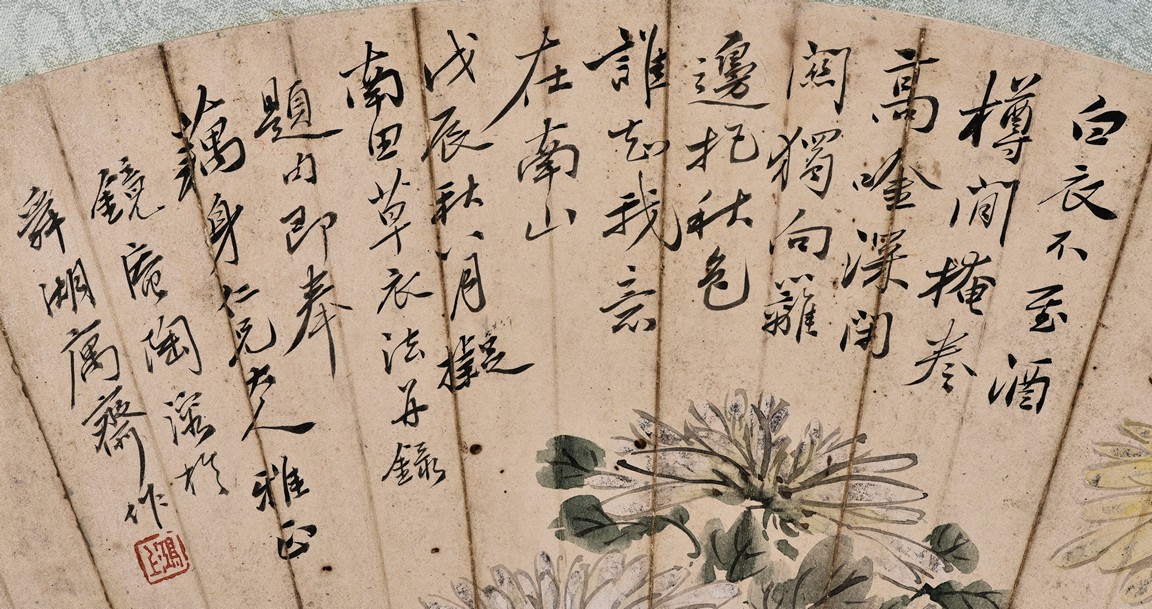 白衣不至酒
樽閒掩卷
高唫深閉
關獨向籬
邊把秋色
誰知我意
在南山
戊辰秋八月擬
南田草衣法并錄
題句即奉
藕身仁兄大人雅正
鏡庵陶於
舜湖寓齋作